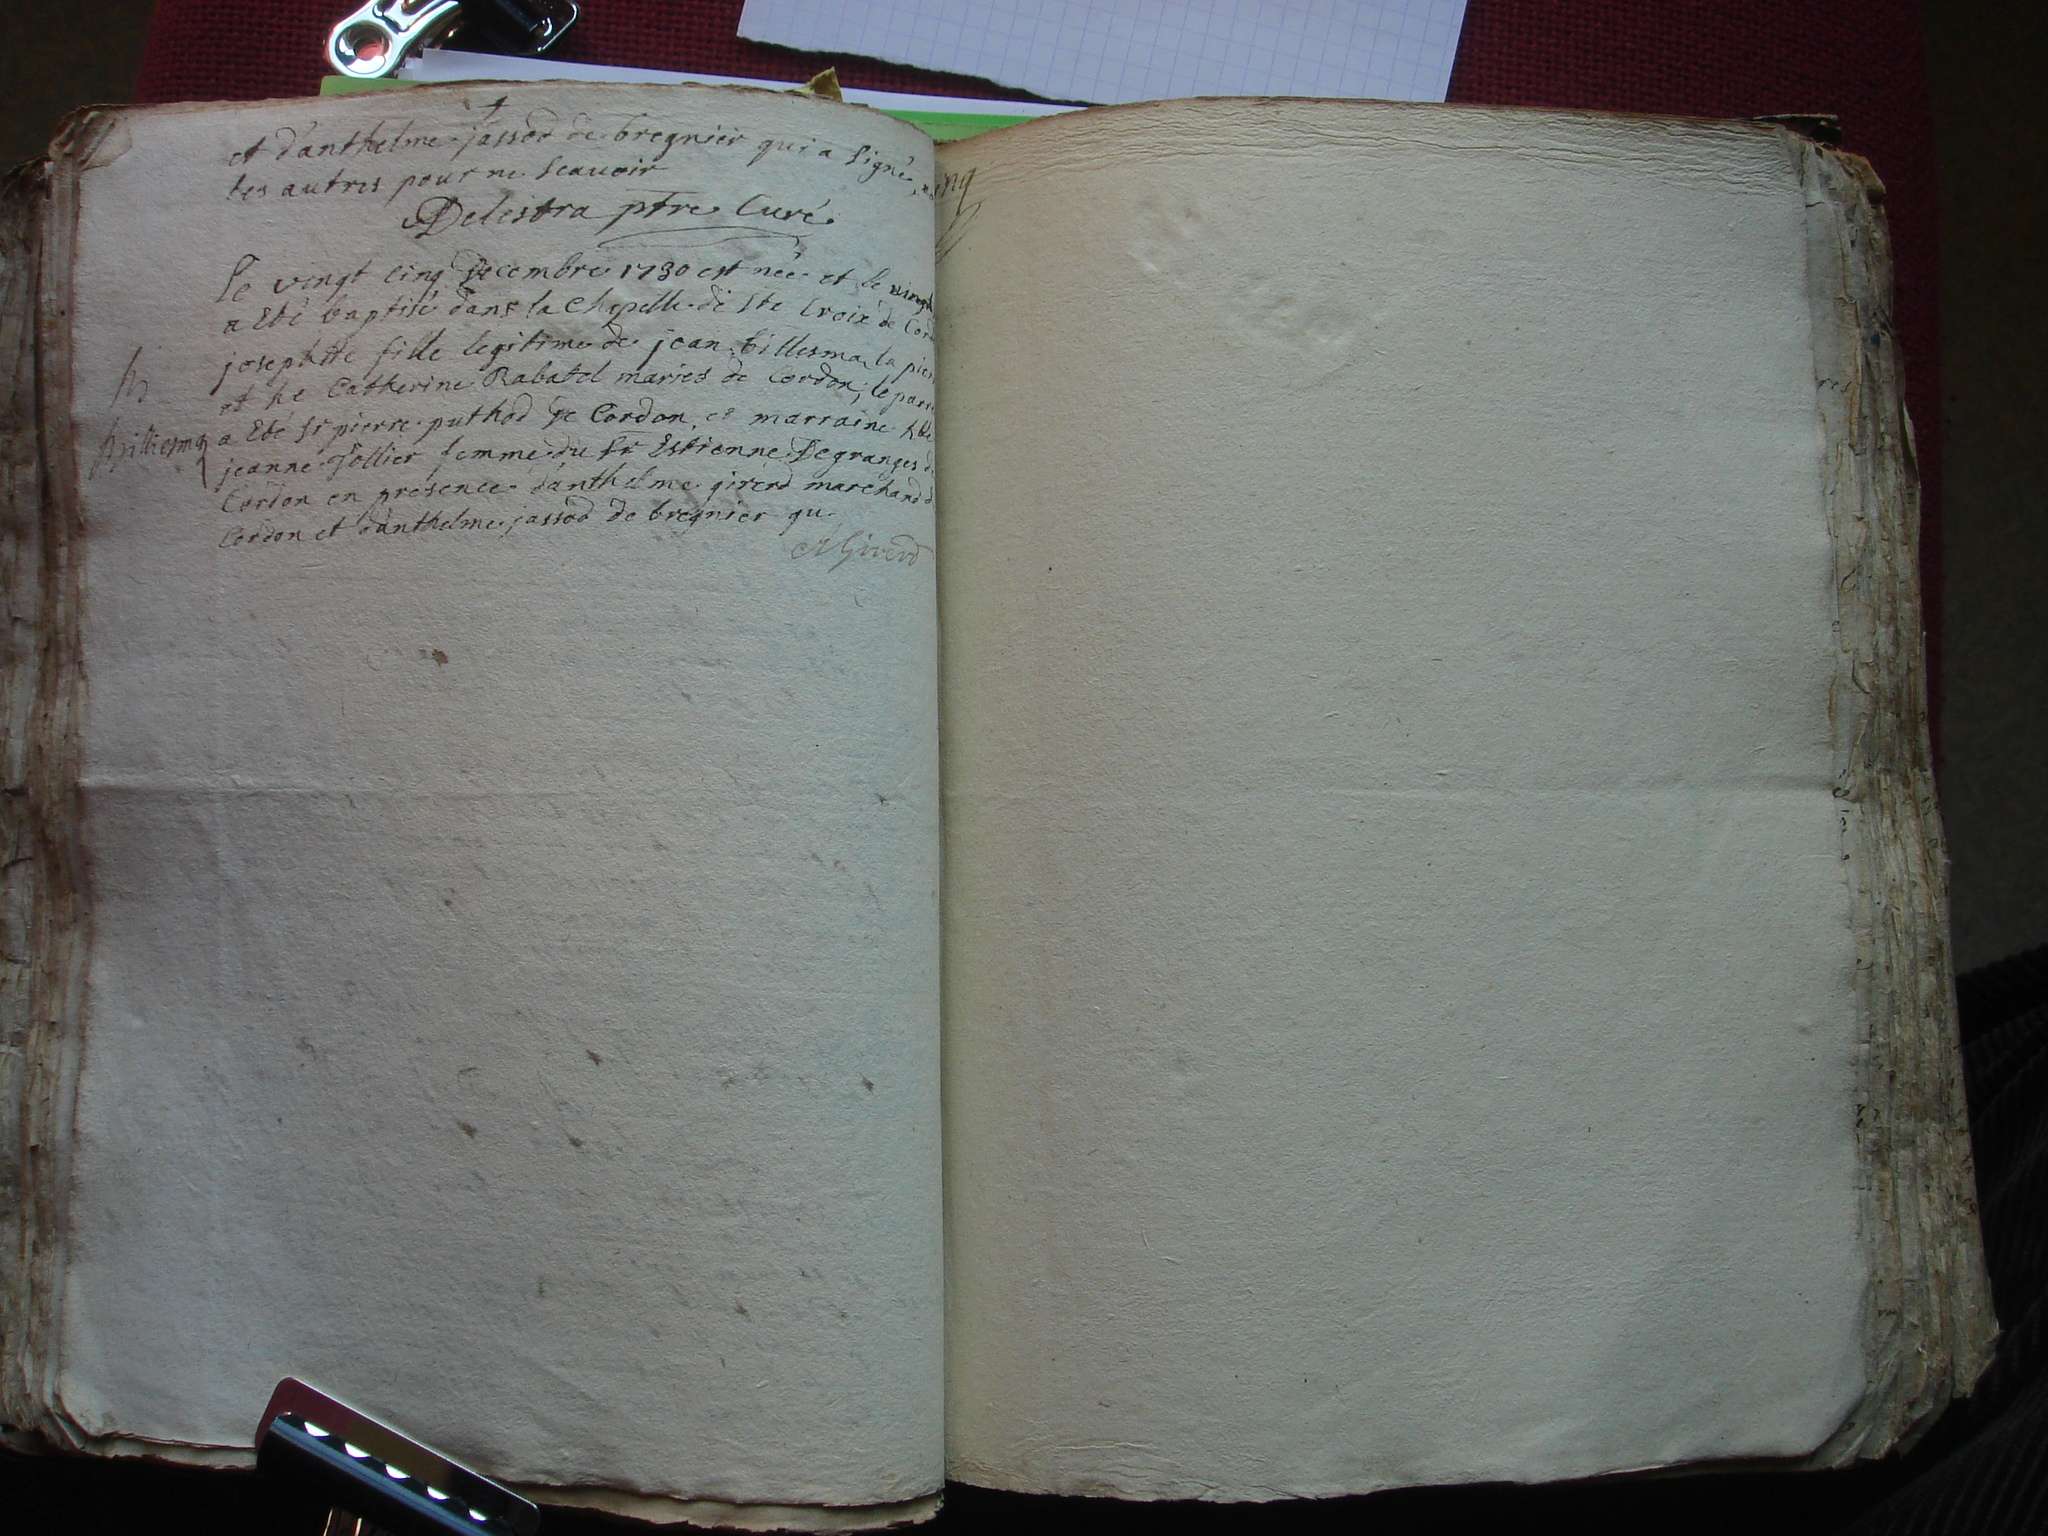 et d'anthelme jassod de bregnier qui a signé, non
les autres pour ne scauoir
Delestra ptre Curé
Le vingt cinq Decembre 1730 est née et le vingt
a Eté baptisé dans la Chepelle de Ste Croix de Cord
josephte fille legitime de jean billiema la pier
et he Catherine Rabatel mariés de Cordon, le parr
a Eté sr pierre puthod de Cordon, et marraine hble
jeanne jollier femme du Sr Estienne Degranges d
Cordon en presence d'anthelme girerd marchand d
Cordon et d'anthelme jassod de bregnier qu
AGirerd
billiema